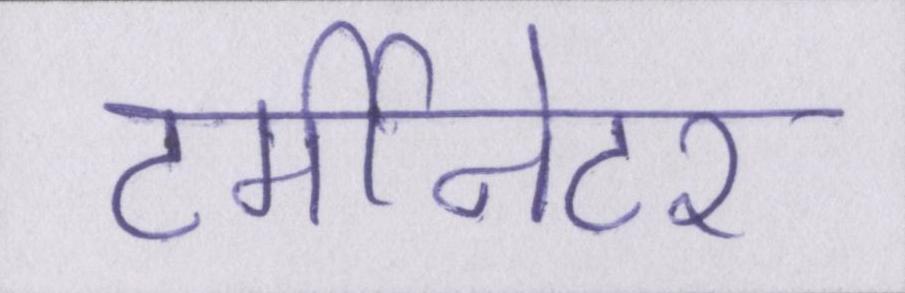 टर्मीनेटर